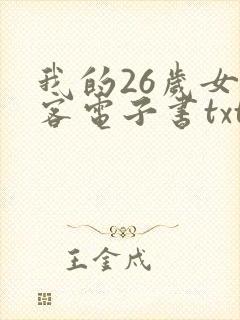 我的26岁女
客电子书txt
王金戍